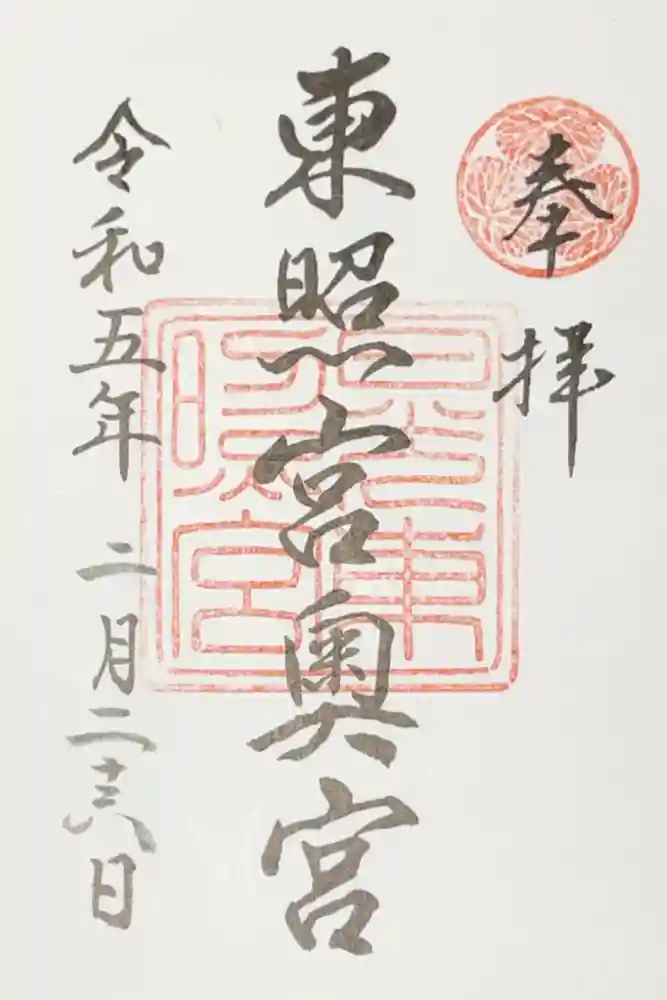 奉拝
東照宮奥宮
日光東
照宮
令和五年 二月二十六日